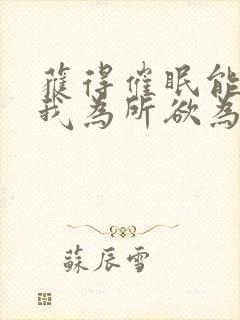 獲得催眠能
我為所欲為
蘇辰雪